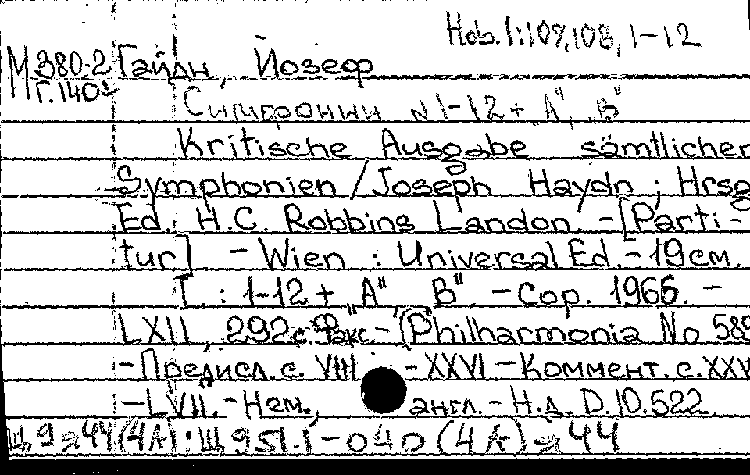 Hob. I:107,108, 1-12
М 380-2 Гайдн, Йозеф
Г.140
Симфонии N 1-12 + "A", "B"
Kritische Ausgabe sämtlicher
Symphonien / Joseph Haydn ; Hrsg
Ed. H.C. Robbins Landon. - [Parti-
tur] - Wien : Universal Ed. - 19 см.
T. : 1-12 + "A", "B". - Cop. 1965. -
LXII, 292 с. факс. - (Philharmonia No 589
- Предисл. с. VIII - XXVI - Коммент. с. XXV
- LVII. - Нем., англ. - Н.д. D.10.522
Щ 9 я 44 (4А) : Щ 951.1 - 040 (4А) я 44